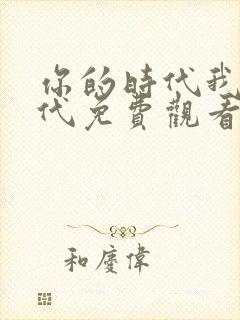 你的時代我
代免費觀看
和慶偉